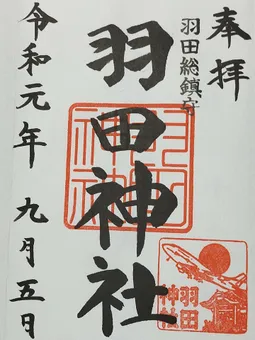 奉拝
羽田総鎮守
羽田神社
令和元年 九月五日
羽田神社
羽田
神社